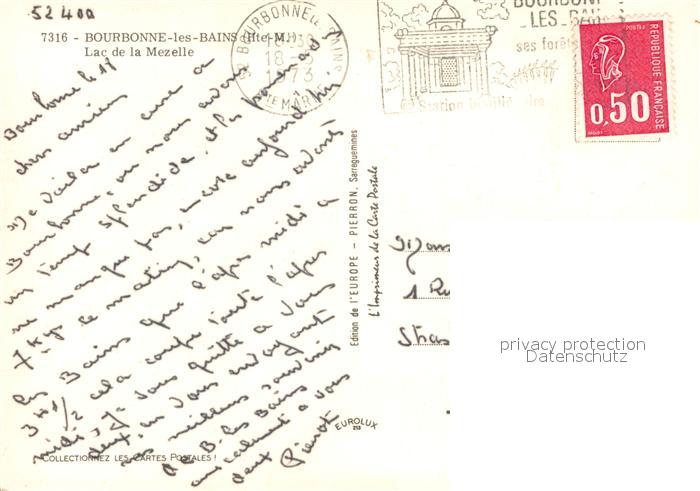 52400
7316 - BOURBONNE-les-BAINS (Hte-M.)
Lac de la Mezelle
52 BOURBONNE LES BAINS
18-
1973
HTE MARNE
BOURBONNE
LES-BAINS
ses forêts
Station
POSTES
REPUBLIQUE FRANÇAISE
0,50
Bourbonne le 18
chers amis
Me voilà en cure a
Bourbonne où nous avons
un temps splendide et les
ne manque pas, marche aujourd'hui
7 kgs le matin, car nous avons
les Bains que l'après midi à
3 h 1/2 cela coupe toute l'après
midi, je vous quitte a vous
deux, en vous envoyant
nos meilleurs souvenirs
de B. les Bains
amicalement a vous
deux Pierrot
Edition de l'EUROPE - PIERRON, Sarreguemines
L'Imprimeur de la Carte Postale
EUROLUX
COLLECTIONNEZ LES CARTES POSTALES !
Mons
1 Ru
Stras
privacy protection
Datenschutz